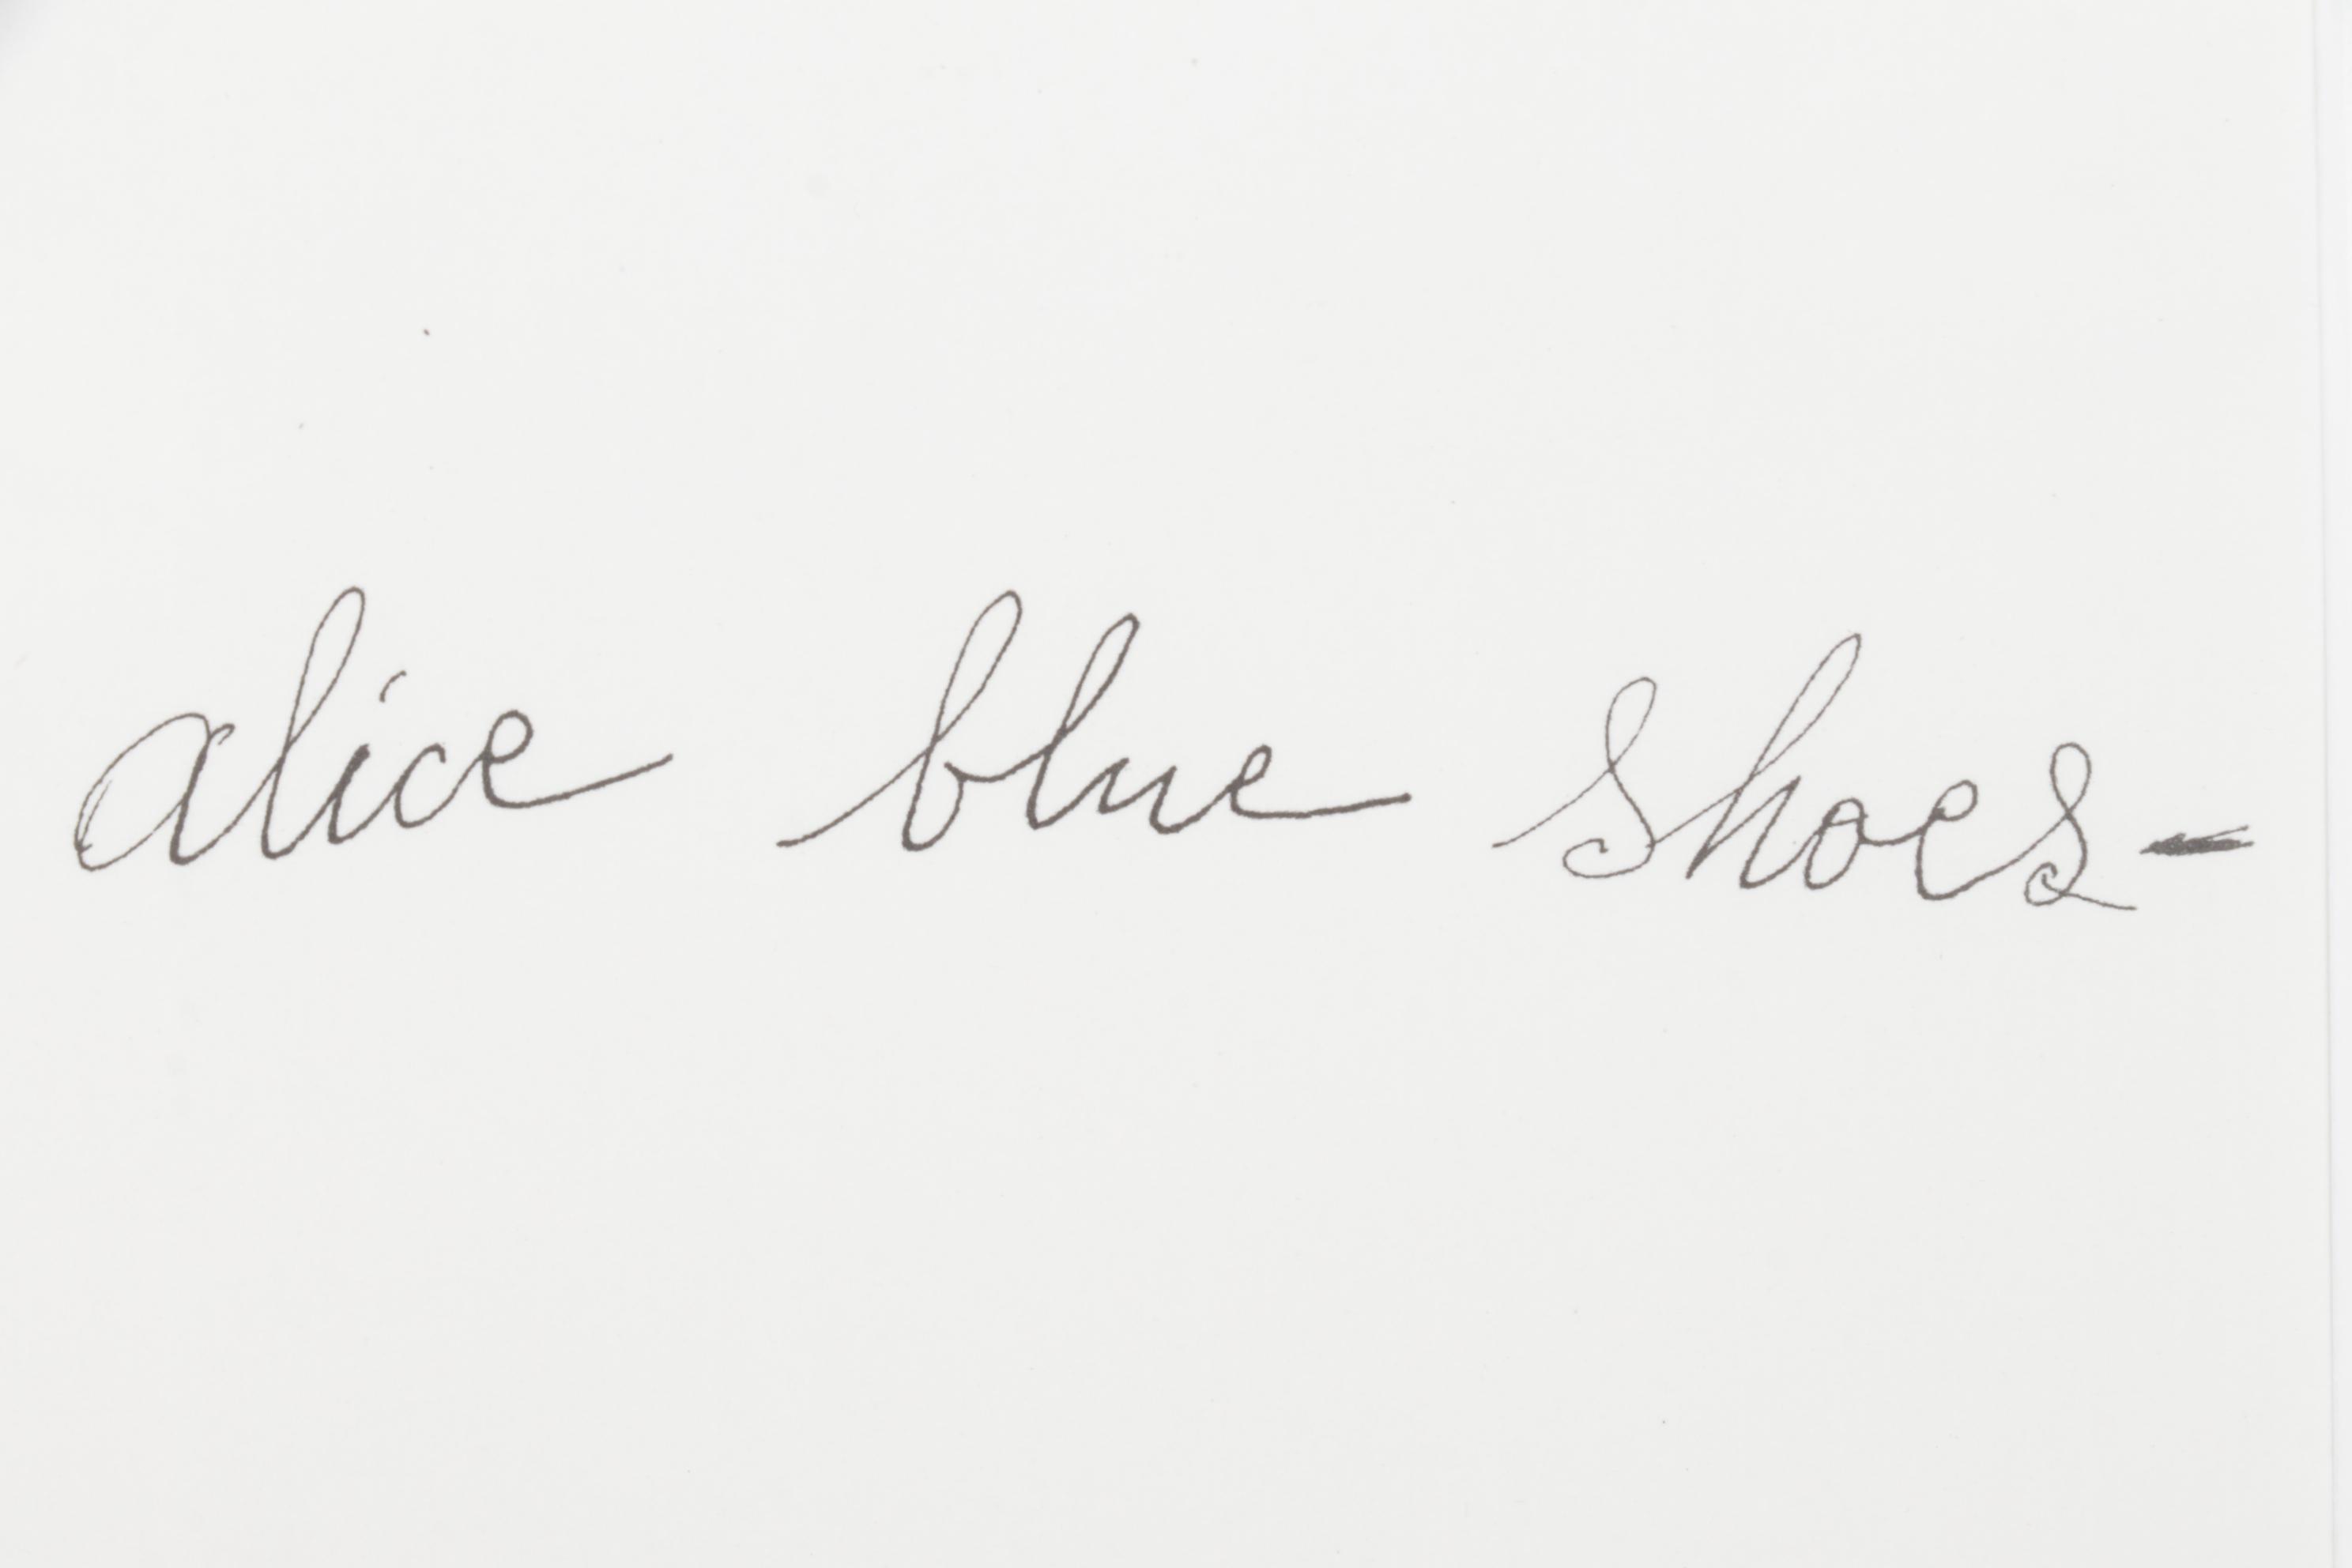 alice blue shoes-